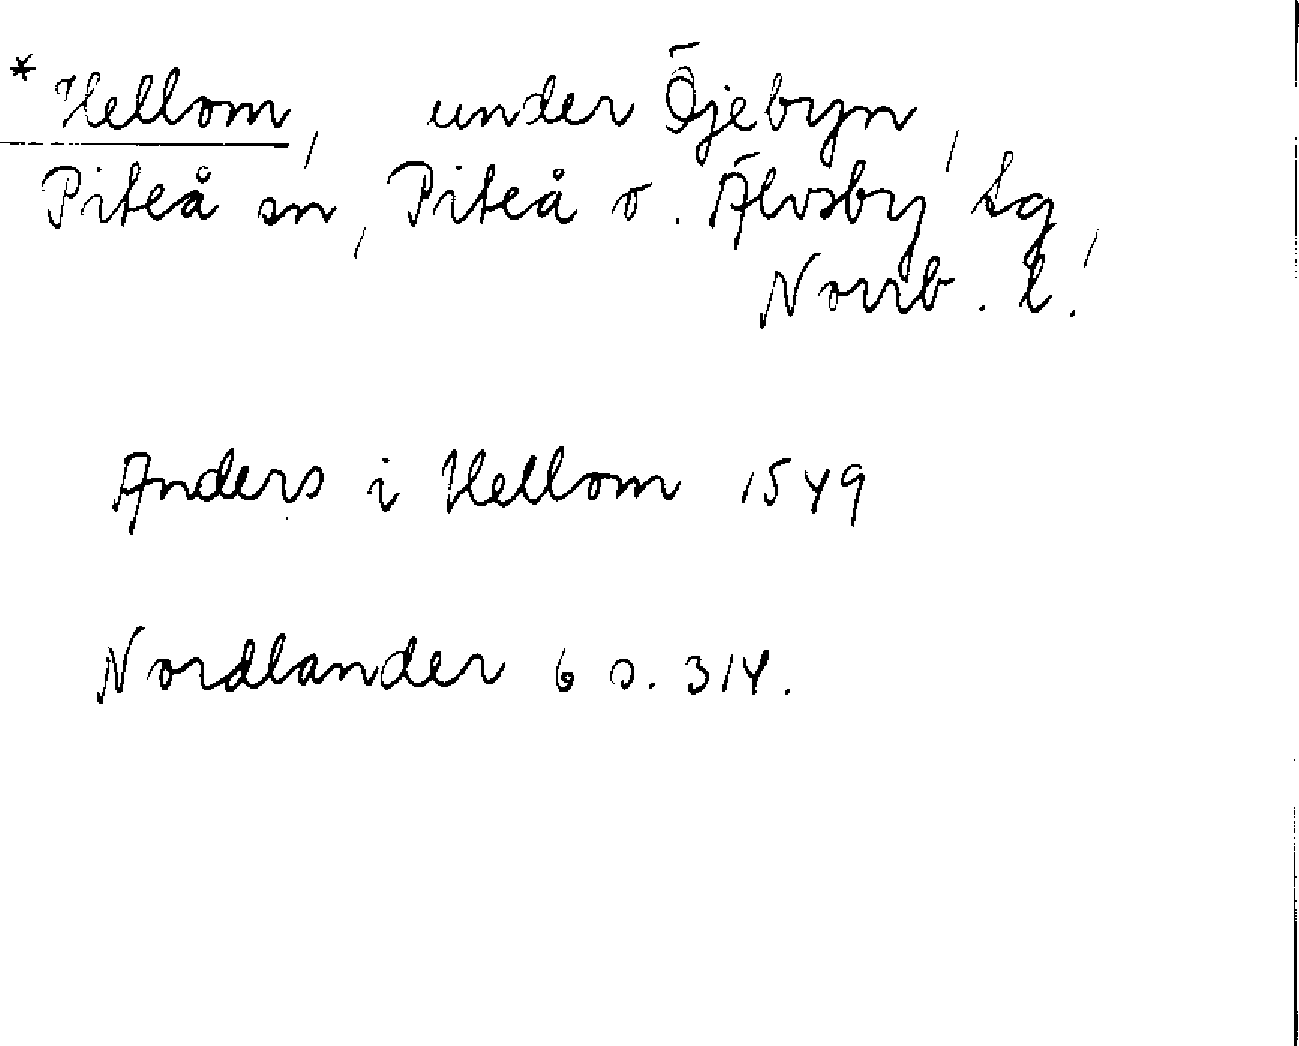 * Hellom, under Öjebyn,
Piteå sn, Piteå o. Älvsby tg,
Norrb. l.
Anders i Hellom 1549
Nordlander 6 s. 314.